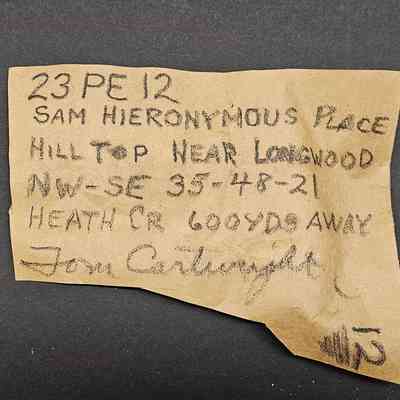 23 PE 12
SAM HIERONYMOUS PLACE
HILL TOP NEAR LONGWOOD
NW-SE 35-48-21
HEATH CR 600YDS AWAY
Tom Cartwright
12